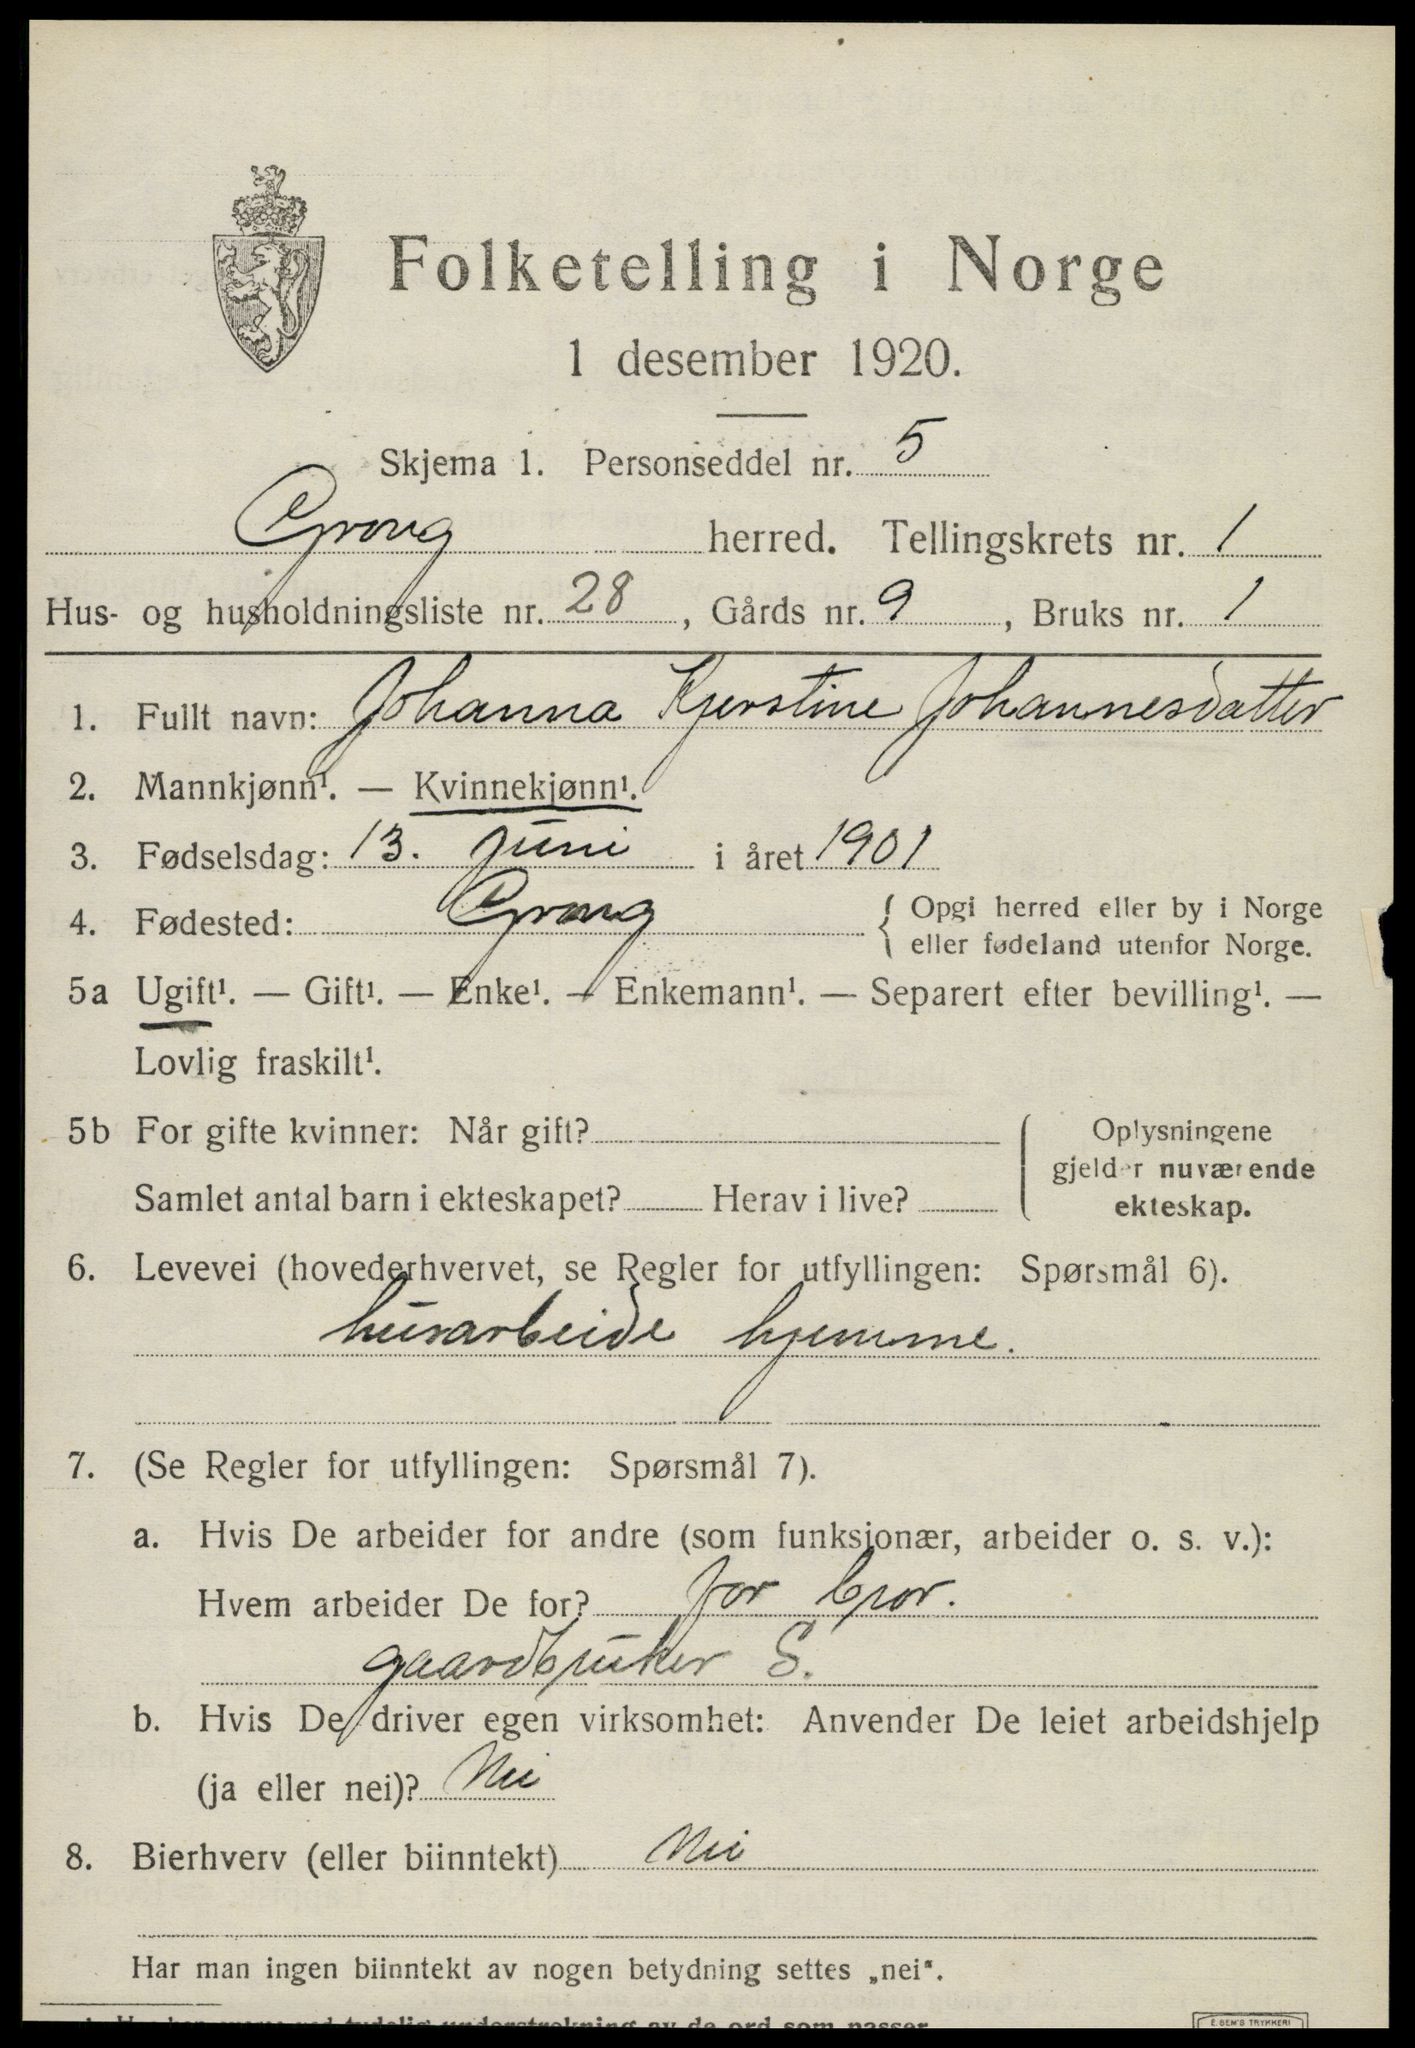 Folketelling i Norge
1 desember 1920.
Skjema 1. Personseddel nr. 5
Grong herred. Tellingskrets nr. 1
Hus- og husholdningsliste nr. 28, Gårds nr. 9, Bruks nr. 1
1. Fullt navn: Johanna Kjerstine Johannesdatter
2. Mannkjønn¹. — Kvinnekjønn¹.
3. Fødselsdag: 13. juni i året 1901
4. Fødested: Grong { Opgi herred eller by i Norge
eller fødeland utenfor Norge.
5a Ugift¹. — Gift¹. — Enke¹. — Enkemann¹. — Separert efter bevilling¹. —
Lovlig fraskilt¹.
5b For gifte kvinner: Når gift?
Samlet antal barn i ekteskapet? Herav i live?
Oplysningene
gjelder nuværende
ekteskap.
6. Levevei (hovederhvervet, se Regler for utfyllingen: Spørsmål 6).
husarbeide hjemme.
7. (Se Regler for utfyllingen: Spørsmål 7).
a. Hvis De arbeider for andre (som funksjonær, arbeider o. s. v.):
Hvem arbeider De for? for bror.
gaardbruker S.
b. Hvis De driver egen virksomhet: Anvender De leiet arbeidshjelp
(ja eller nei)? Nei
8. Bierhverv (eller biinntekt) Nei
Har man ingen biinntekt av nogen betydning settes „nei“.
tydelig understrekning av de ord som passer
E. SEM'S TRYKKERI